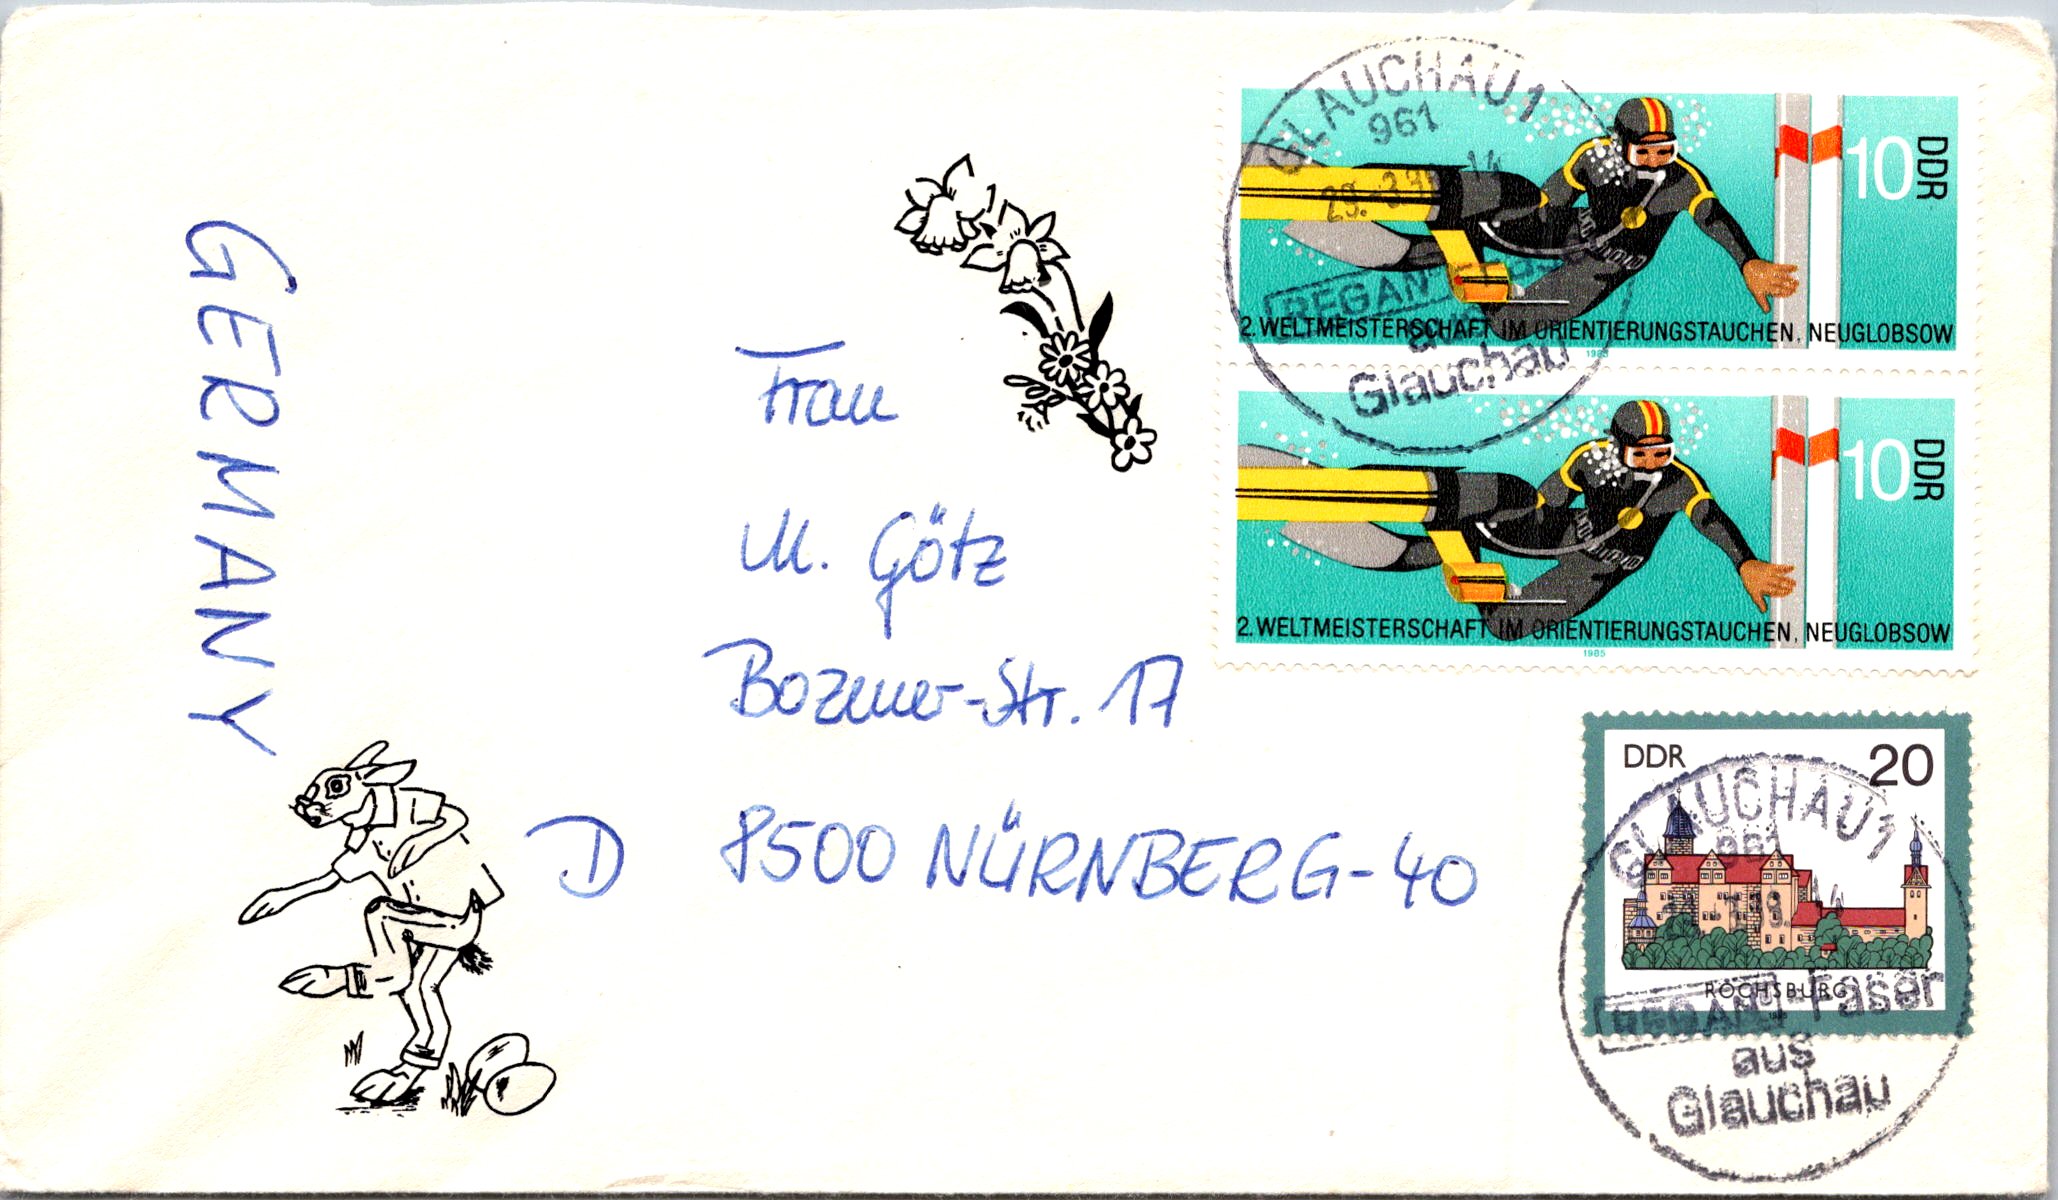 GERMANY
Frau
M. Götz
Bozener-Str. 17
D 8500 NÜRNBERG-40
GLAUCHAU 1
961
29.-3.
REGAN
Glauchau
10 DDR
2. WELTMEISTERSCHAFT IM ORIENTIERUNGSTAUCHEN, NEUGLOBSOW
1985
10 DDR
2. WELTMEISTERSCHAFT IM ORIENTIERUNGSTAUCHEN, NEUGLOBSOW
1985
DDR 20
ROCHSBURG
GLAUCHAU 1
961
REGAN-Faser
aus
Glauchau